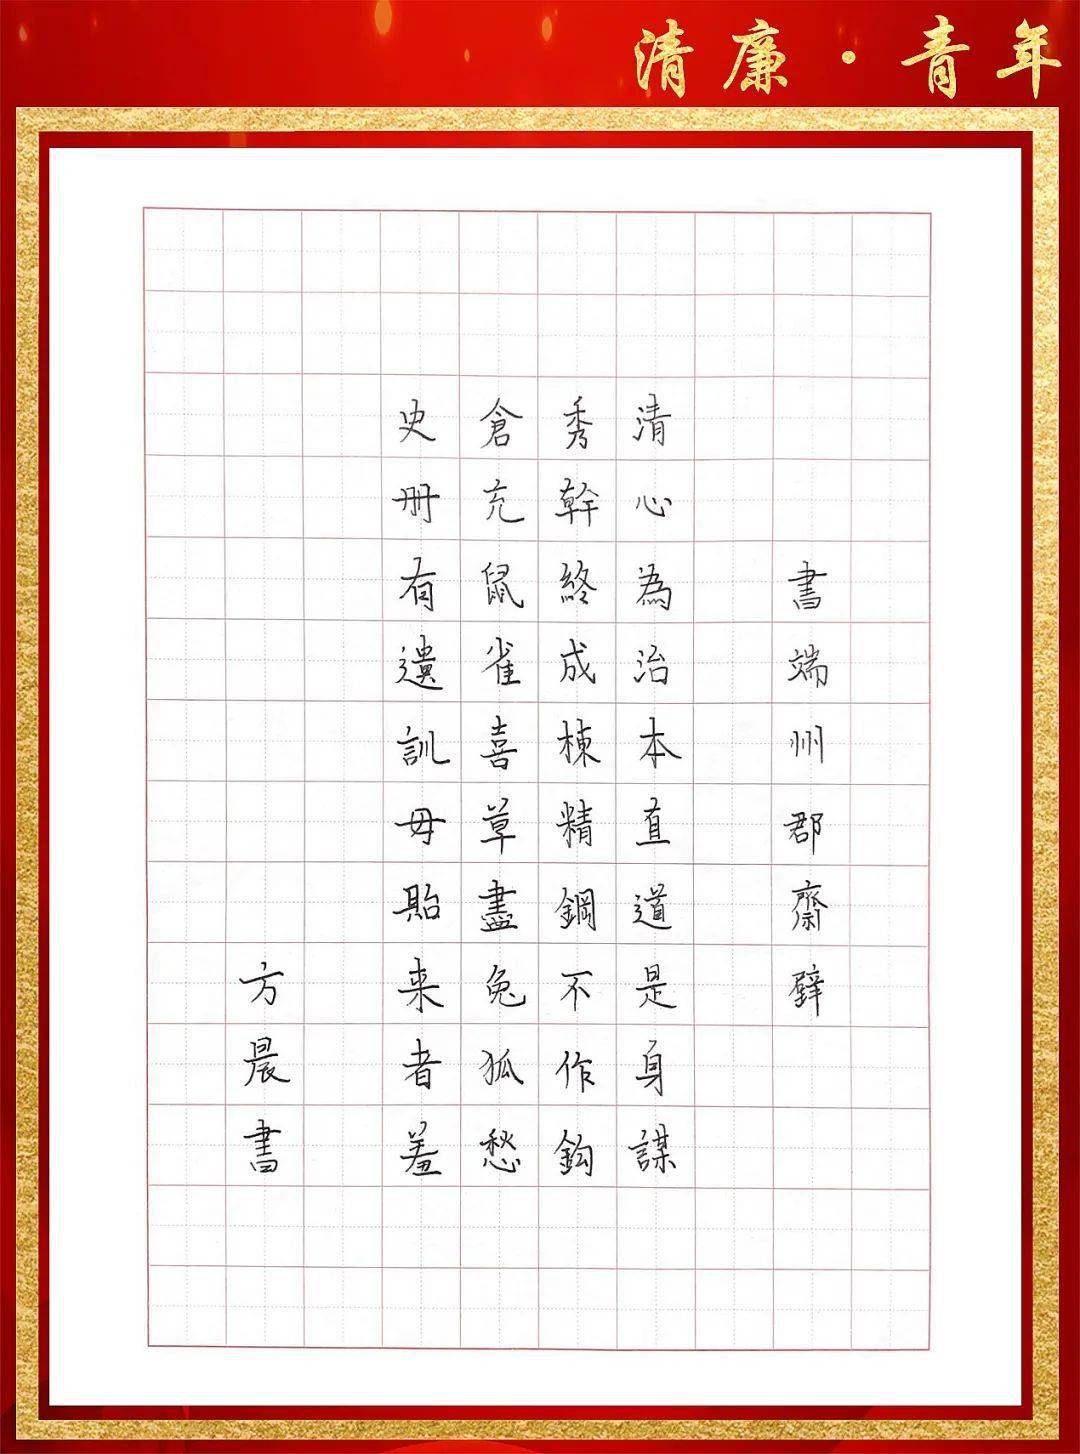 清廉·青年
書端州郡齋壁
清心為治本直道是身謀
秀幹終成棟精鋼不作鈎
倉充鼠雀喜草盡兔狐愁
史册有遺訓毋貽来者羞
方晨書